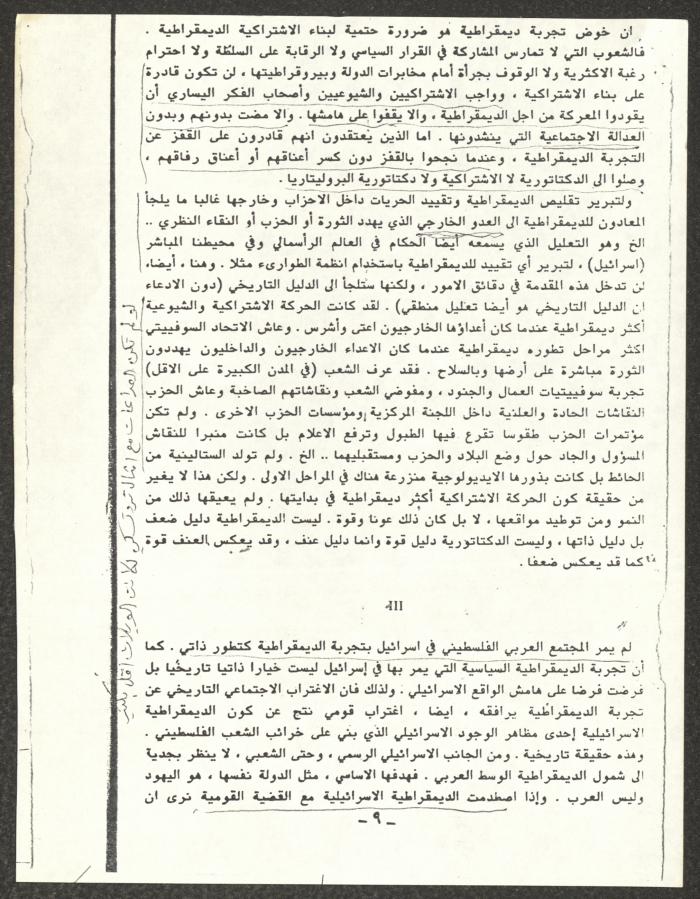 ان خوض تجربة ديمقراطية هو ضرورة حتمية لبناء الاشتراكية الديمقراطية .
فالشعوب التي لا تمارس المشاركة في القرار السياسي ولا الرقابة على السلطة ولا احترام
رغبة الاكثرية ولا الوقوف بجرأة أمام مخابرات الدولة وبيروقراطيتها ، لن تكون قادرة
على بناء الاشتراكية ، وواجب الاشتراكيين والشيوعيين وأصحاب الفكر اليساري أن
يقودوا المعركة من اجل الديمقراطية ، والا يقفوا على هامشها . والا مضت بدونهم وبدون
العدالة الاجتماعية التي ينشدونها . اما الذين يعتقدون انهم قادرون على القفز عن
التجربة الديمقراطية ، وعندما نجحوا بالقفز دون كسر أعناقهم أو أعناق رفاقهم ،
وصلوا الى الدكتاتورية لا الاشتراكية ولا دكتاتورية البروليتاريا .
ولتبرير تقليص الديمقراطية وتقييد الحريات داخل الاحزاب وخارجها غالبا ما يلجأ
المعادون للديمقراطية الى العدو الخارجي الذي يهدد الثورة أو الحزب أو النقاء النظري ..
الخ وهو التعليل الذي يسمعه أيضا الحكام في العالم الرأسمالي وفي محيطنا المباشر
(اسرائيل) ، لتبرير أي تقييد للديمقراطية باستخدام انظمة الطوارىء مثلا . وهنا ، أيضا،
لن تدخل هذه المقدمة في دقائق الامور ، ولكنها ستلجأ الى الدليل التاريخي (دون الادعاء
ان الدليل التاريخي هو أيضا تعليل منطقي) . لقد كانت الحركة الاشتراكية والشيوعية
أكثر ديمقراطية عندما كان أعداؤها الخارجيون اعتى وأشرس . وعاش الاتحاد السوفييتي
اكثر مراحل تطوره ديمقراطية عندما كان الاعداء الخارجيون والداخليون يهددون
الثورة مباشرة على أرضها وبالسلاح . فقد عرف الشعب (في المدن الكبيرة على الاقل)
تجربة سوفييتيات العمال والجنود ، ومفوضي الشعب ونقاشاتهم الصاخبة وعاش الحزب
النقاشات الحادة والعلنية داخل اللجنة المركزية ومؤسسات الحزب الاخرى . ولم تكن
مؤتمرات الحزب طقوسا تقرع فيها الطبول وترفع الاعلام بل كانت منبرا للنقاش
المسؤول والجاد حول وضع البلاد والحزب ومستقبليهما .. الخ . ولم تولد الستالينية من
الحائط بل كانت بذورها الايديولوجية منزرعة هناك في المراحل الاولى . ولكن هذا لا يغير
من حقيقة كون الحركة الاشتراكية أكثر ديمقراطية في بدايتها . ولم يعيقها ذلك من
النمو ومن توطيد مواقعها ، لا بل كان ذلك عونا وقوة . ليست الديمقراطية دليل ضعف
بل دليل ذاتها ، وليست الدكتاتورية دليل قوة وانما دليل عنف ، وقد يعكس العنف قوة
كما قد يعكس ضعفا .
III
لم يمر المجتمع العربي الفلسطيني في اسرائيل بتجربة الديمقراطية كتطور ذاتي . كما
أن تجربة الديمقراطية السياسية التي يمر بها في إسرائيل ليست خيارا ذاتيا تاريخيا بل
فرضت فرضا على هامش الواقع الاسرائيلي . ولذلك فان الاغتراب الاجتماعي التاريخي عن
تجربة الديمقراطية يرافقه ، ايضا ، اغتراب قومي نتج عن كون الديمقراطية
الاسرائيلية إحدى مظاهر الوجود الاسرائيلي الذي بني على خرائب الشعب الفلسطيني .
وهذه حقيقة تاريخية . ومن الجانب الاسرائيلي الرسمي ، وحتى الشعبي ، لا ينظر بجدية
الى شمول الديمقراطية الوسط العربي . فهدفها الاساسي ، مثل الدولة نفسها ، هو اليهود
وليس العرب . وإذا اصطدمت الديمقراطية الاسرائيلية مع القضية القومية نرى ان
- ٩ -
لو لم تكن الصراعات مع